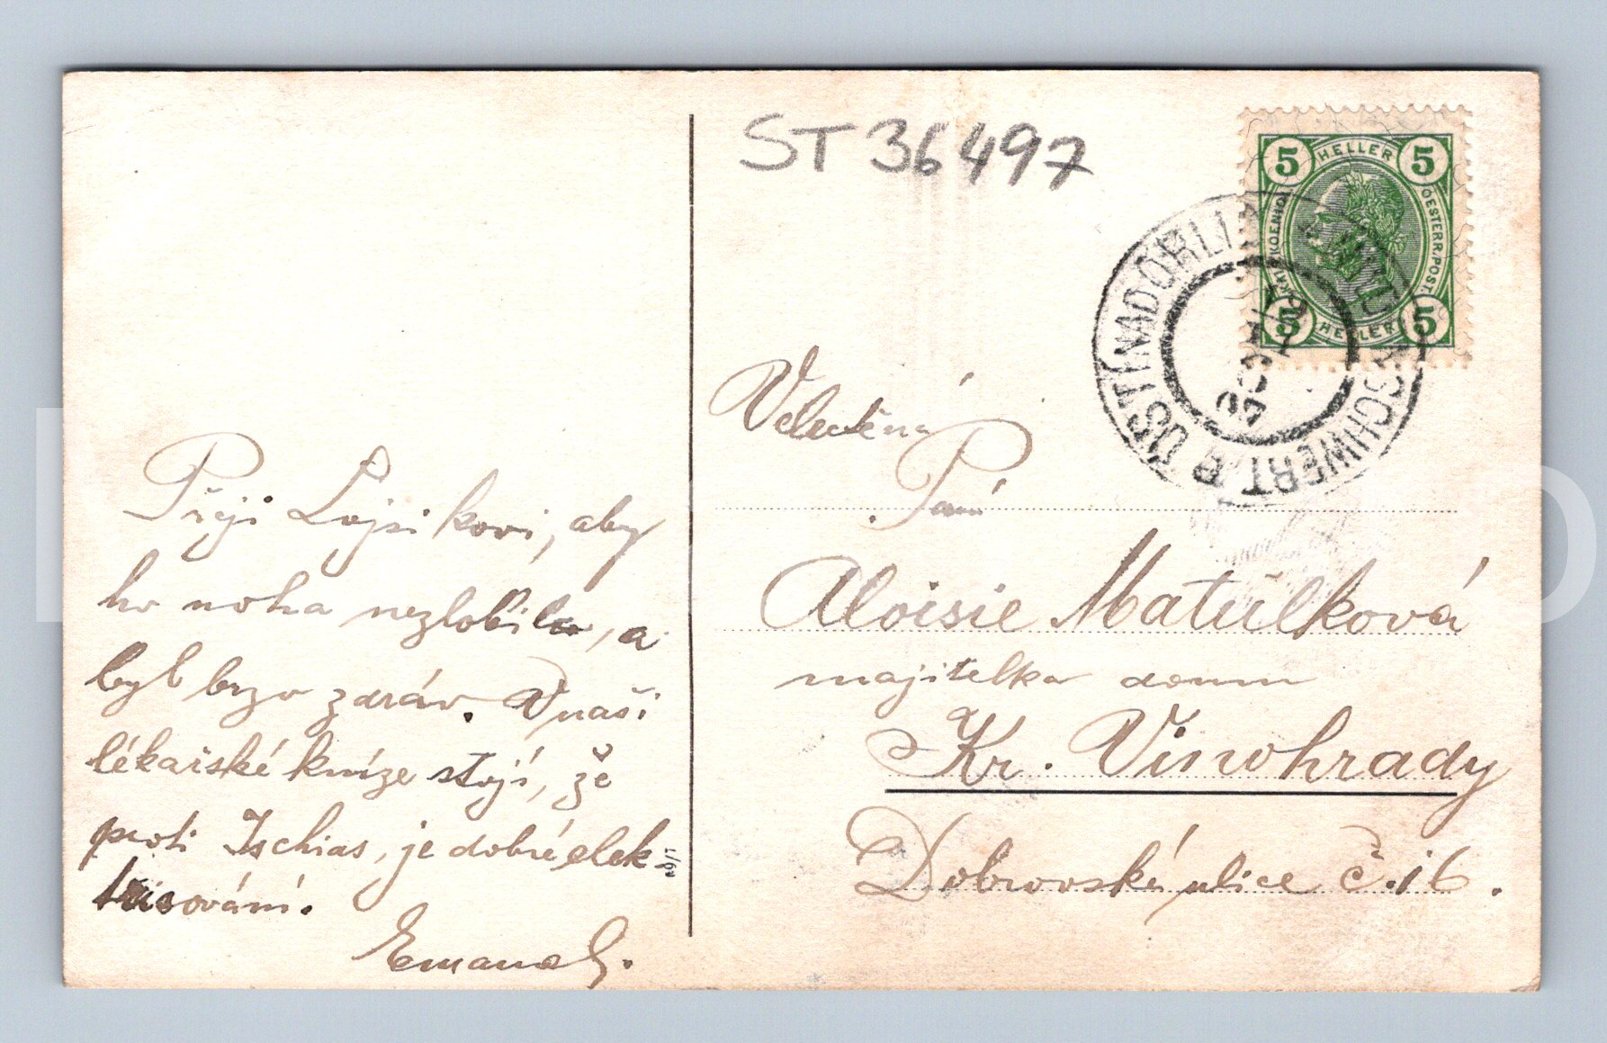 ST 36497
5 HELLER 5
KAIS. KOENIGL.
OESTERR. POST.
5 HELLER 5
ÚSTÍ NAD ORLICÍ
WILDENSCHWERT
Velectěná
Paní
Aloisie Matušková
majitelka domu
Kr. Vinohrady
Dobrovské ulice č. 16.
Přeji Lojsikovi, aby
ho noha nezlobila, a
byl brzo zdráv. V naší
lékařské knize stojí, že
proti Ischias, je dobré elek-
trisování.
Emanuel.